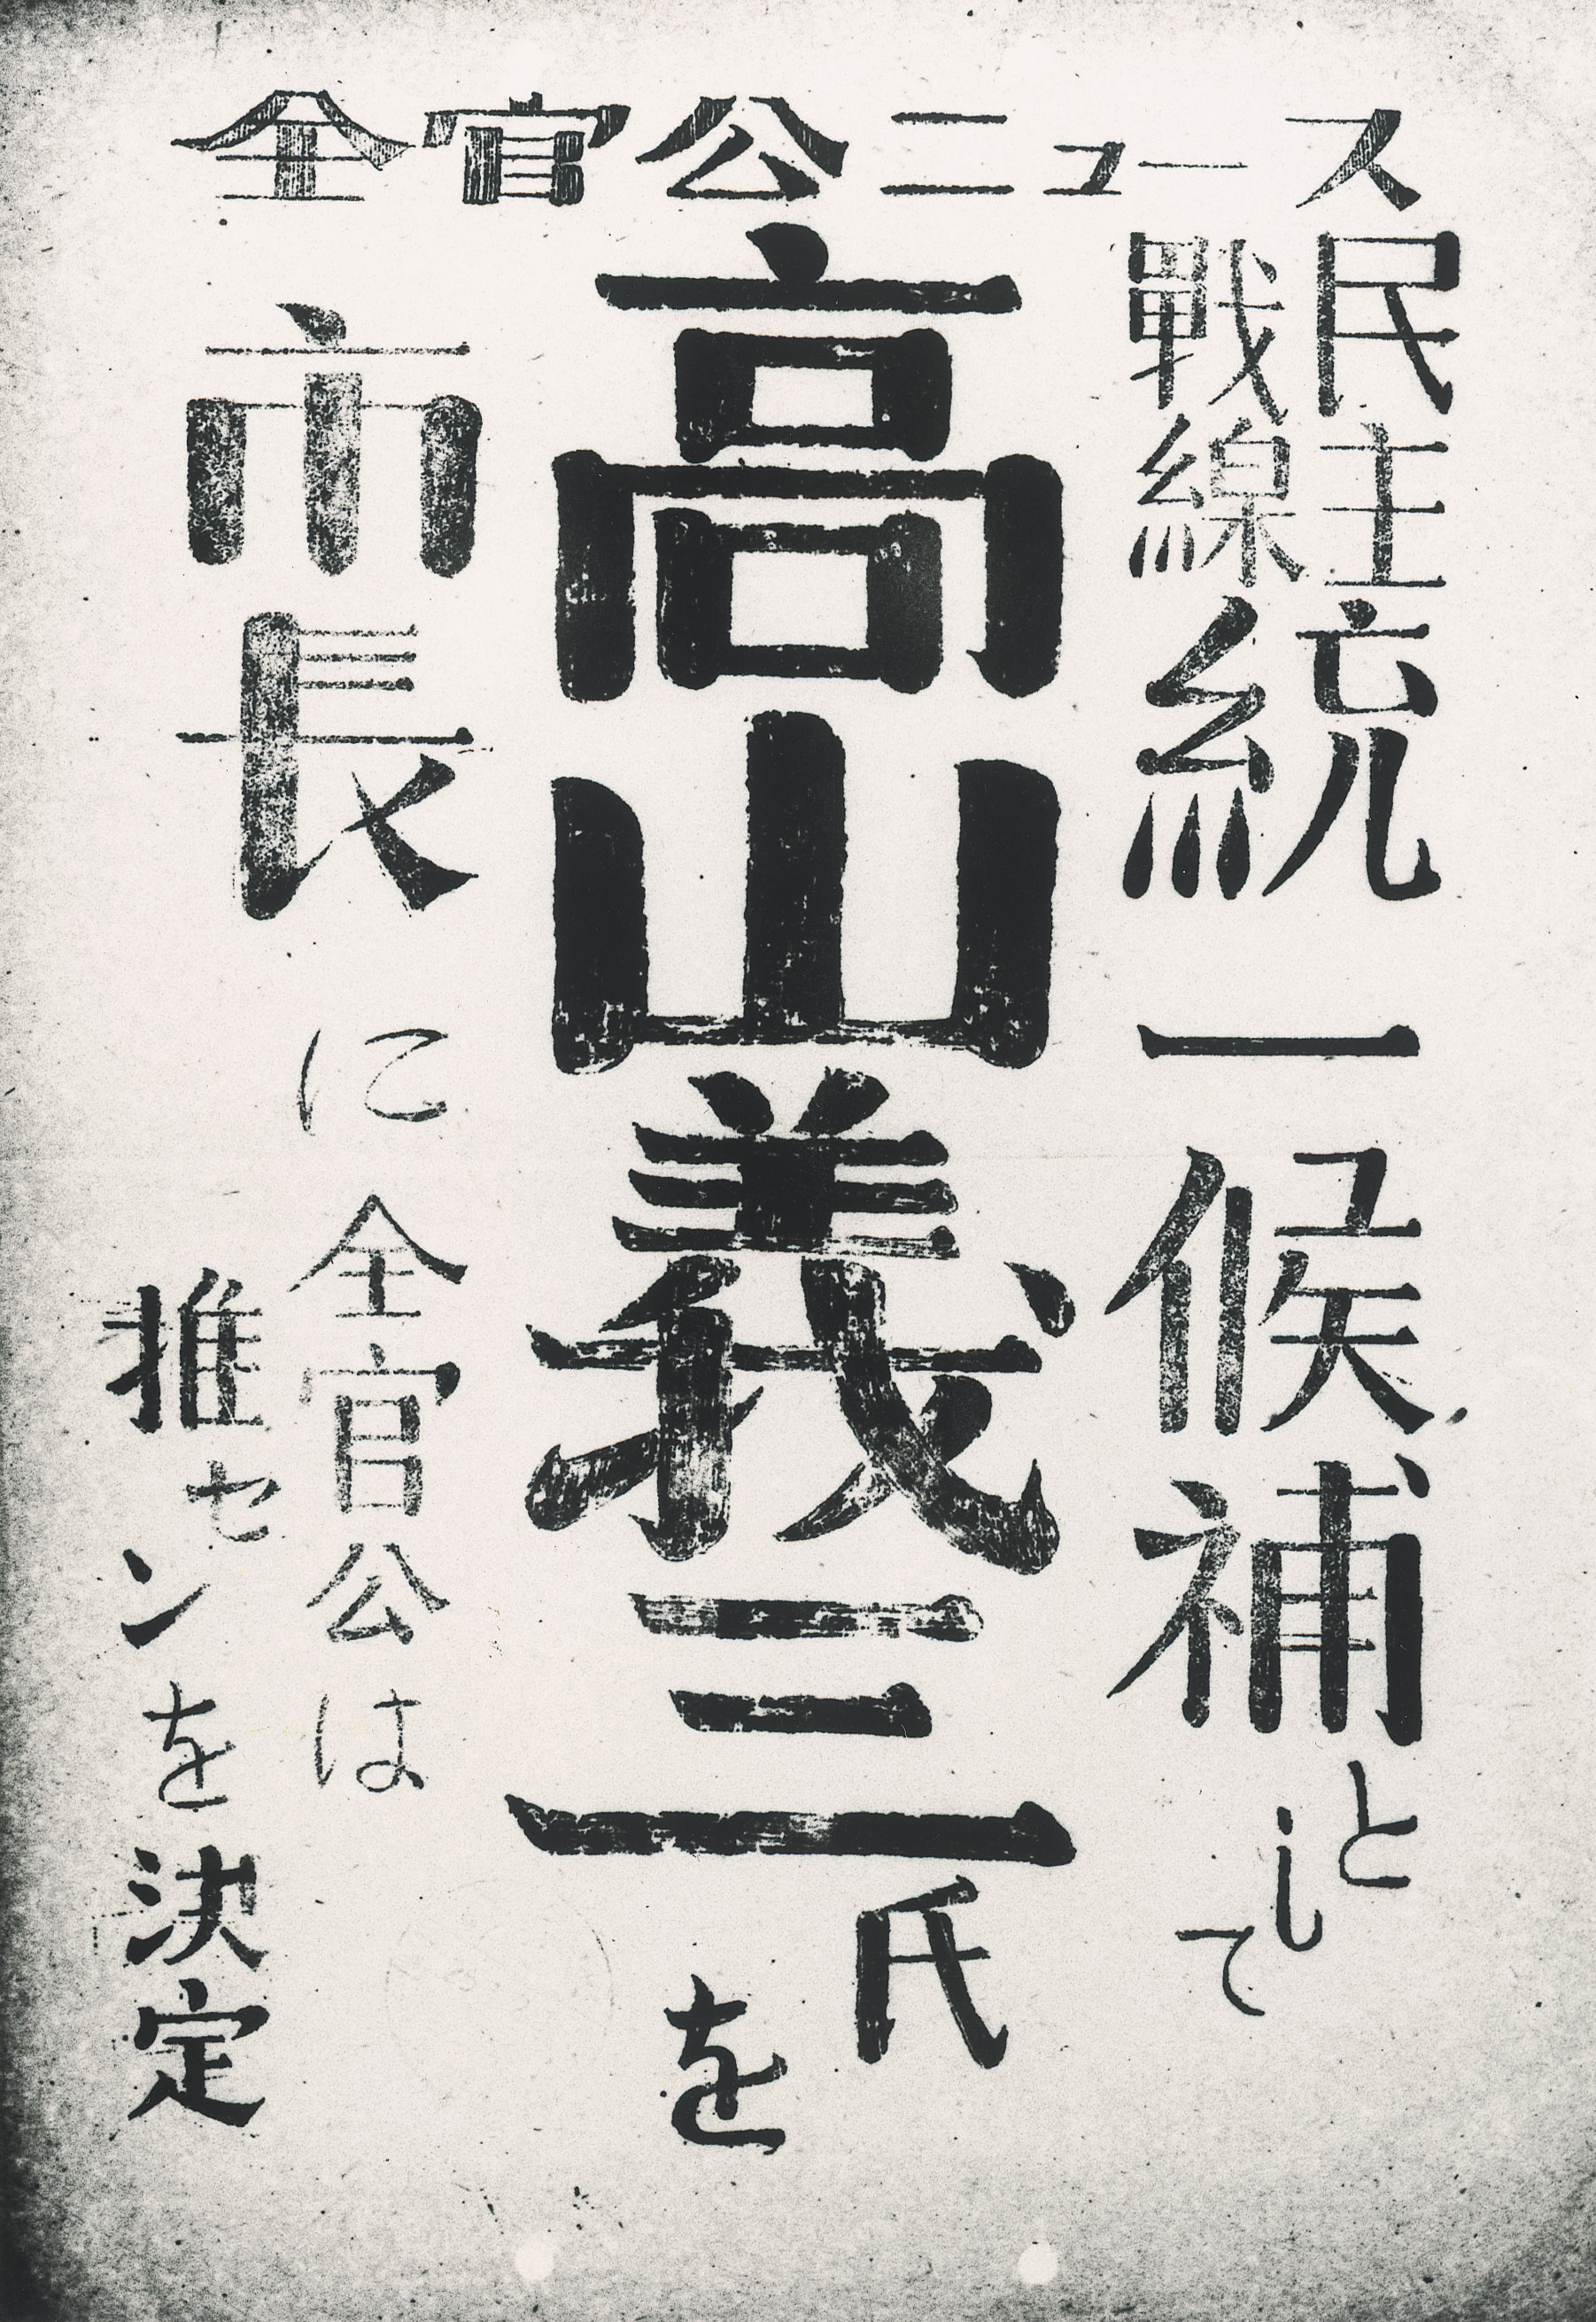 全官公ニュース
民主戰線統一候補として
高山義三氏を
市長に全官公は
推センを決定